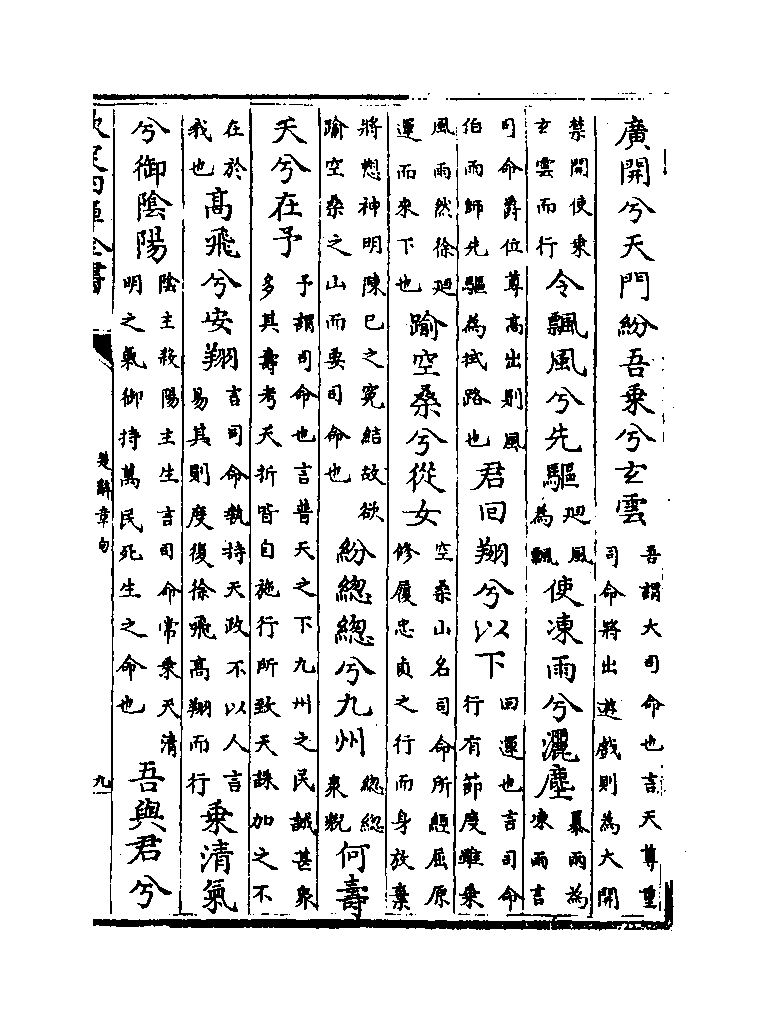 廣開兮天門紛吾乘兮玄雲吾謂大司命也言天尊重司命將出遊戲則為大開
禁開使乘玄雲而行令飄風兮先驅廻風為飄使凍雨兮灑塵暴雨為凍雨言
司命爵位尊高出則風伯雨師先驅為拭路也君回翔兮以下回運也言司命行有節度雖乘
風雨然徐廻運而來下也踰空桑兮從女空桑山名司命所經屈原修履忠貞之行而身放棄
將愬神明陳已之寃結故欲踰空桑之山而要司命也紛總總兮九州總總衆貌何壽
夭兮在予予謂司命也言普天之下九州之民誠甚衆多其壽考夭折皆自施行所致天誅加之不
在於我也高飛兮安翔言司命執持天政不以人言易其則度復徐飛高翔而行乘清氣
兮御陰陽陰主殺陽主生言司命常乘天清明之氣御持萬民死生之命也吾與君兮
欽定四庫全書
楚辭章句
九